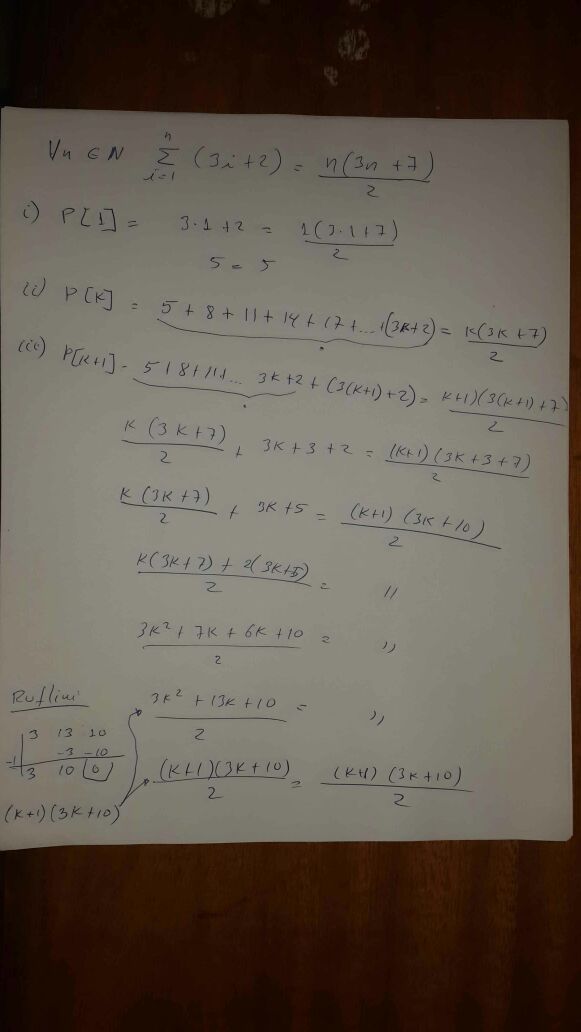 ∀n ∈ N n Σ i=1 (3i+2) = n(3n+7)/2
i) P[1] = 3·1+2 = 1(3·1+7)/2
5 = 5
ii) P[K] = 5+8+11+14+17+...+(3K+2) = K(3K+7)/2
iii) P[K+1] - 5+8+11+... 3K+2 + (3(K+1)+2) = K+1)(3(K+1)+7)/2
K(3K+7)/2 + 3K+3+2 = (K+1)(3K+3+7)/2
K(3K+7)/2 + 3K+5 = (K+1)(3K+10)/2
K(3K+7)+2(3K+5)/2 = "
3K²+7K+6K+10/2 = "
3K²+13K+10/2 = "
(K+1)(3K+10)/2 = (K+1)(3K+10)/2
Ruffini
3 13 10
-1 -3 -10
3 10 0
(K+1)(3K+10)